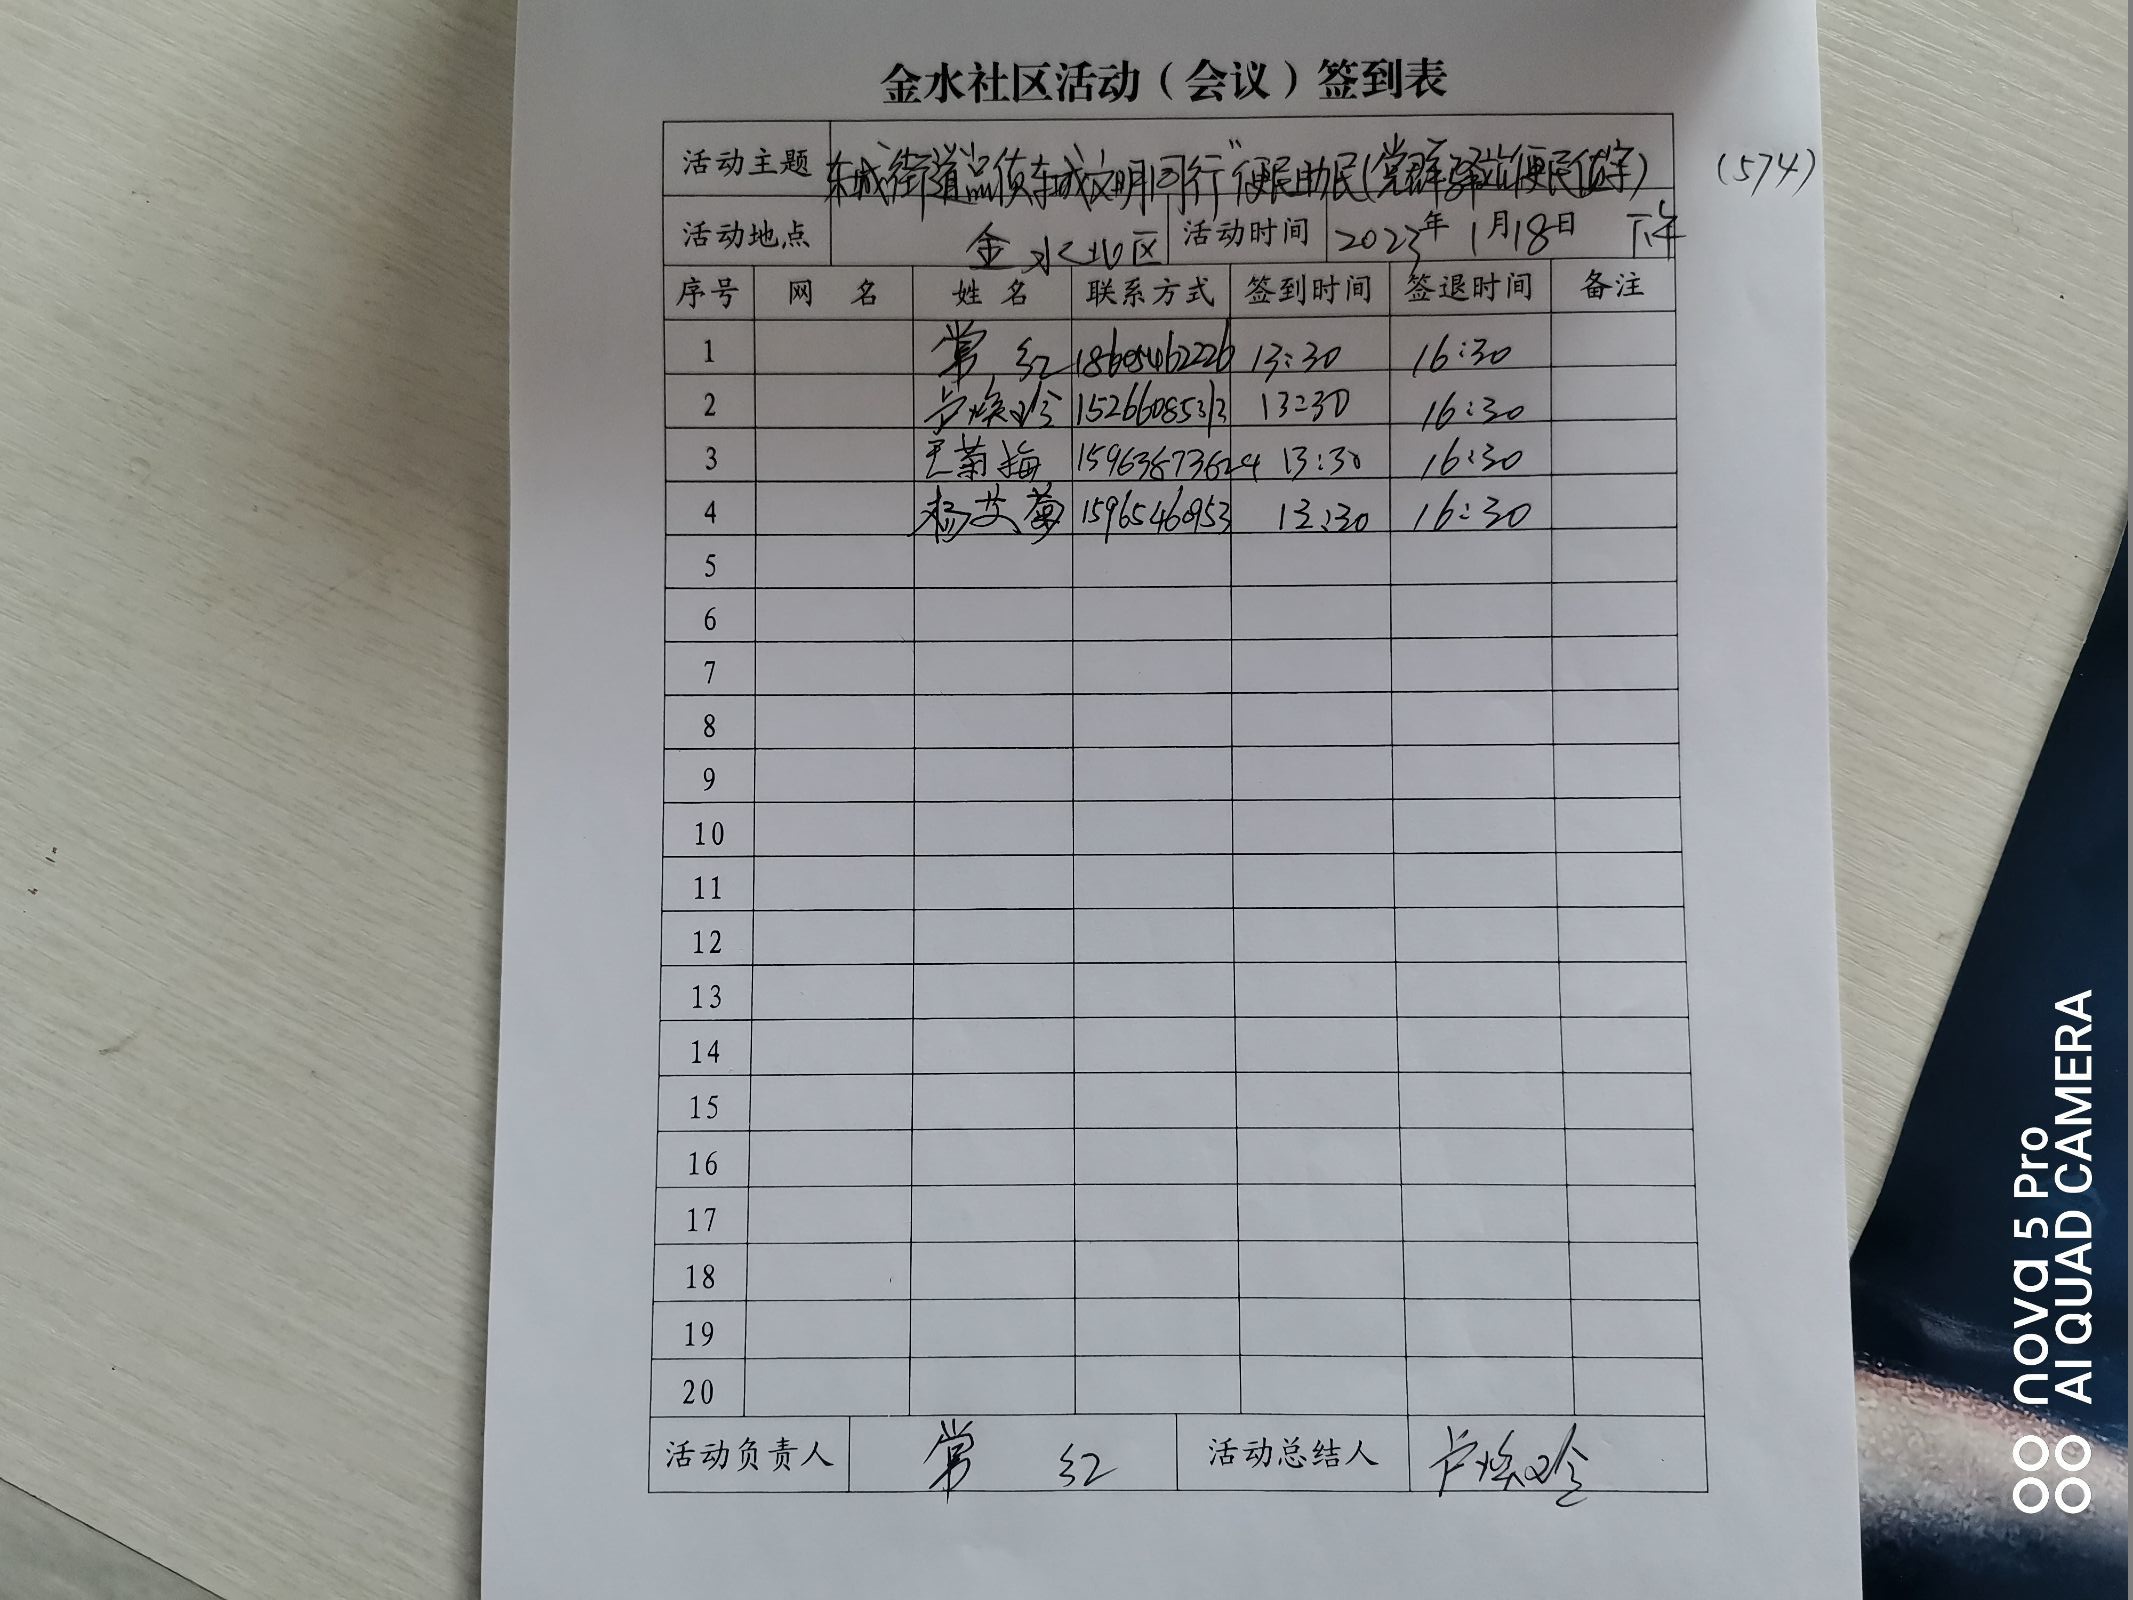 金水社区活动（会议）签到表
活动主题 东城街道"点侦东城文明同行"便民助民(党群驿站便民值守) (574)
活动地点 金水社区 活动时间 2023年1月18日 下午
序号 网 名 姓 名 联系方式 签到时间 签退时间 备注
1 常 红 18605462226 13:30 16:30
2 卢焕玲 15266085313 13:30 16:30
3 王菊梅 15963873624 13:30 16:30
4 杨艾菊 1596546953 13:30 16:30
5
6
7
8
9
10
11
12
13
14
15
16
17
18
19
20
活动负责人 常 红 活动总结人 卢焕玲
nova 5 Pro
AI QUAD CAMERA